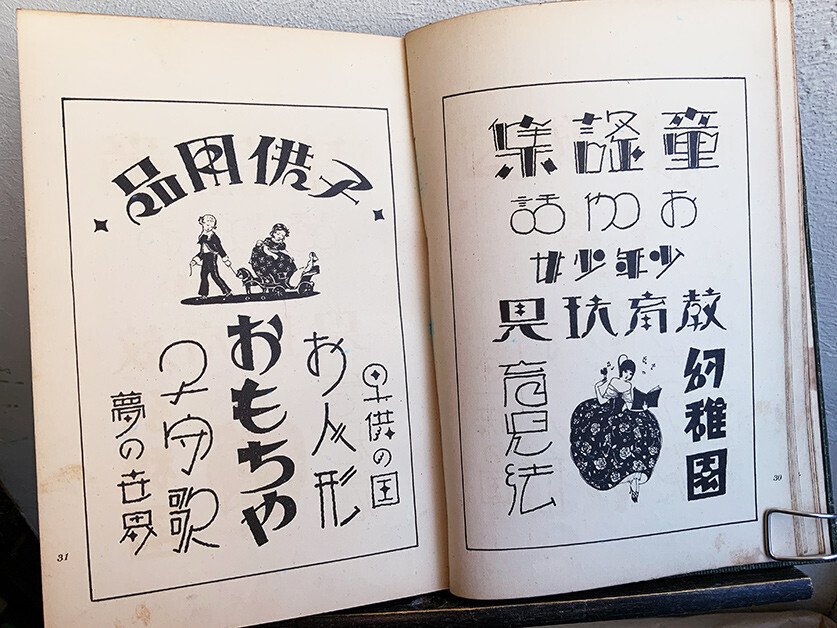 童謡集
お伽話
少年少女
教育玩具
幼稚園
育児法
30
子供用品
子供の国
お人形
おもちゃ
子守歌
夢の世界
31